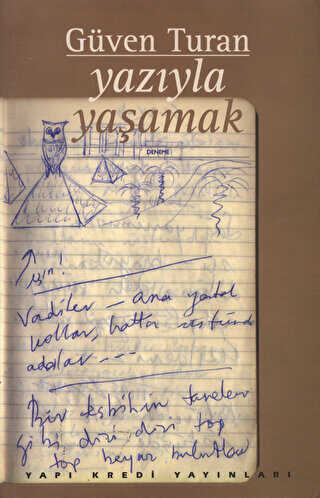 Güven Turan
yazıyla
yaşamak
DENEME
Vadiler – ana yatak
kollar, hatta üstünde
adalar ---
Bir tesbihin taneleri
gibi dizi dizi top
top beyaz bulutlar
YAPI KREDİ YAYINLARI